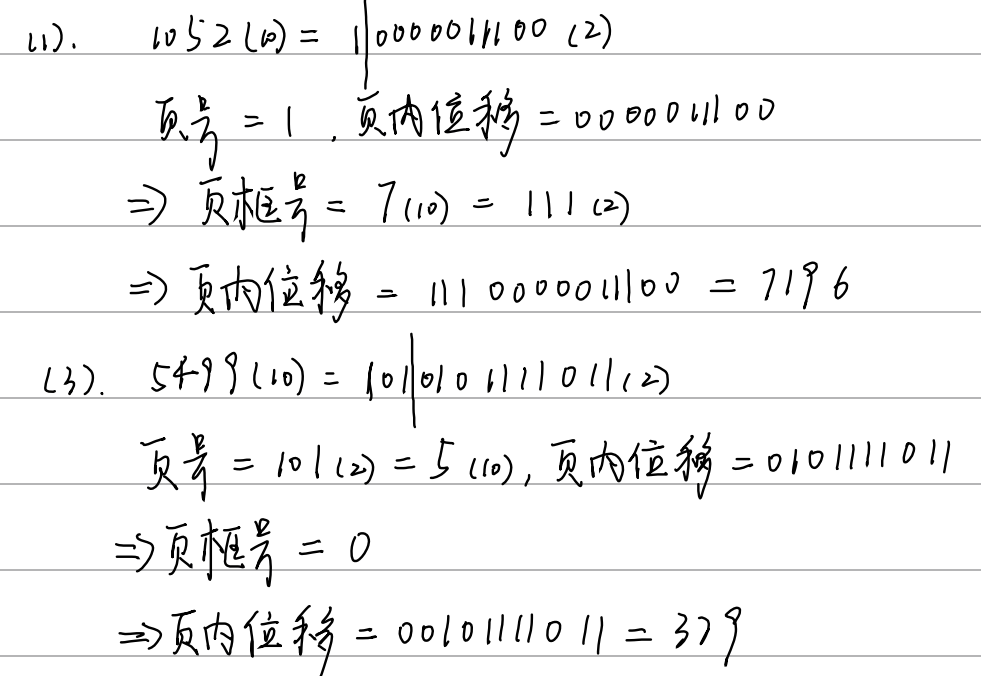 (1). 1052(10) = 1|0000011100 (2)
页号 = 1, 页内位移 = 0000011100
⇒ 页框号 = 7(10) = 111(2)
⇒ 页内位移 = 1110000011100 = 7196
(3). 5499(10) = 101|0101111011(2)
页号 = 101(2) = 5(10), 页内位移 = 0101111011
⇒页框号 = 0
⇒页内位移 = 00101111011 = 379